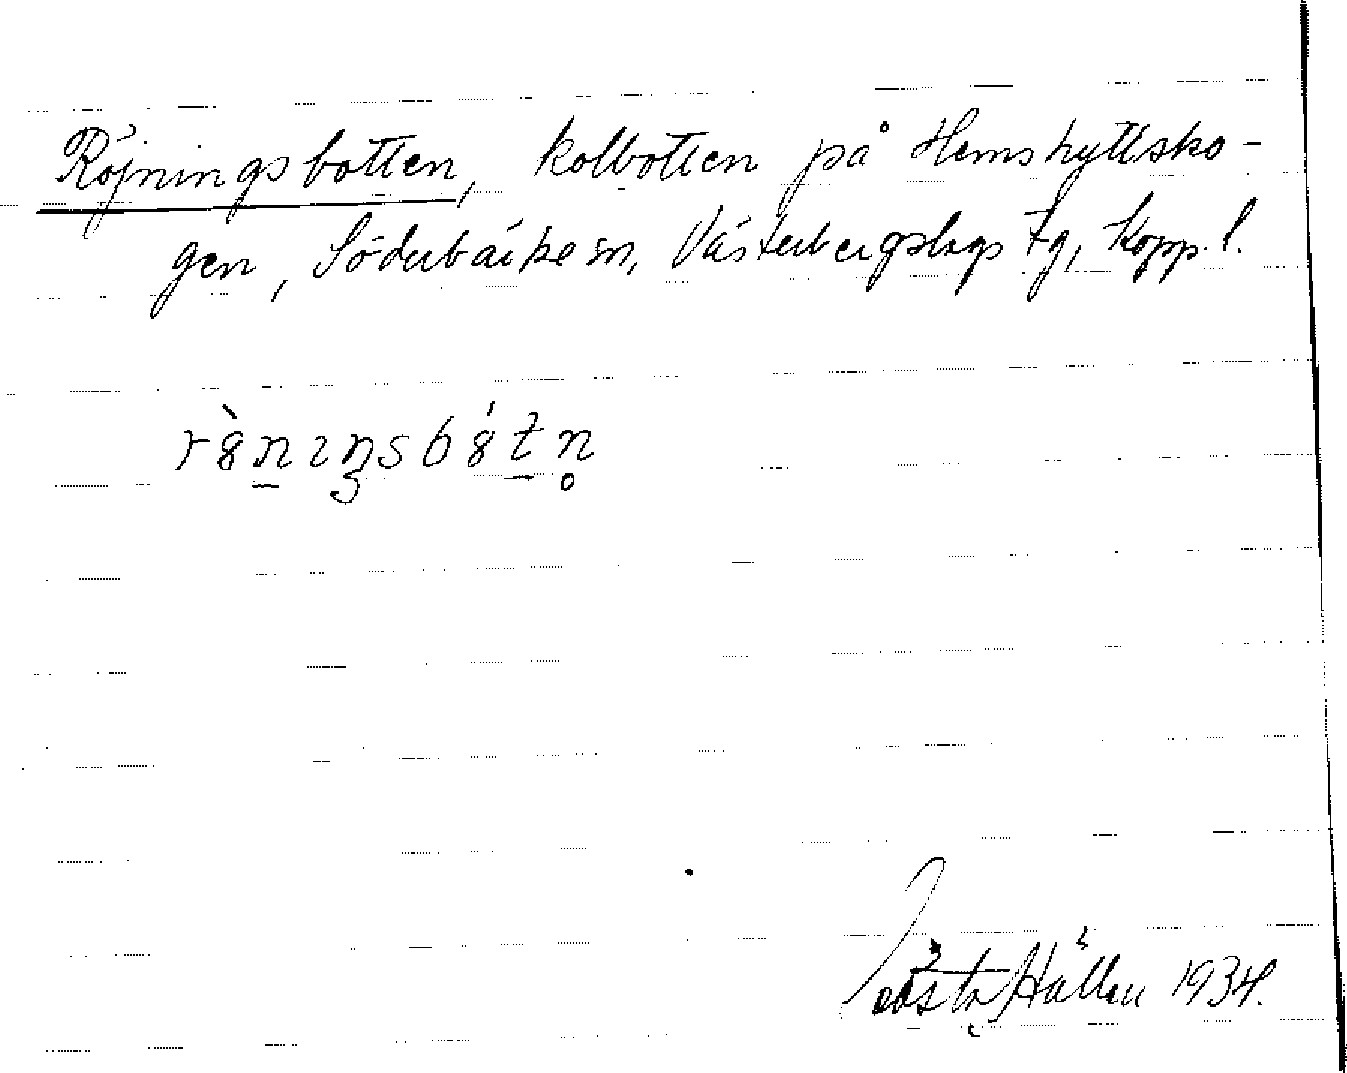 Röjningsbotten, kolbotten på Hemshyttsko-
gen, Söderbärke sn, Västerbergslags tg, Kopp. l.
Gösta Hallen 1934.